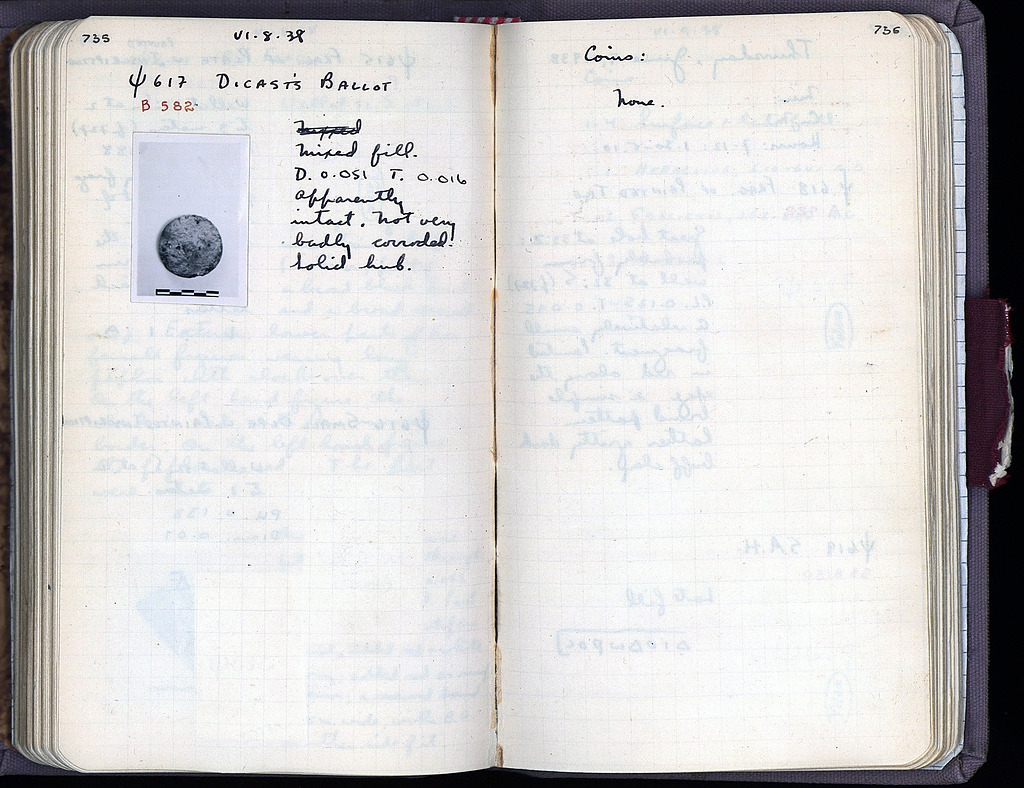 735
VI-8-38
Ψ617 DICAST'S BALLOT
B 582
Mixed fill.
D. 0.051 T. 0.016
apparently
intact. Not very
badly corroded.
Solid hub.
736
Coins:
None.